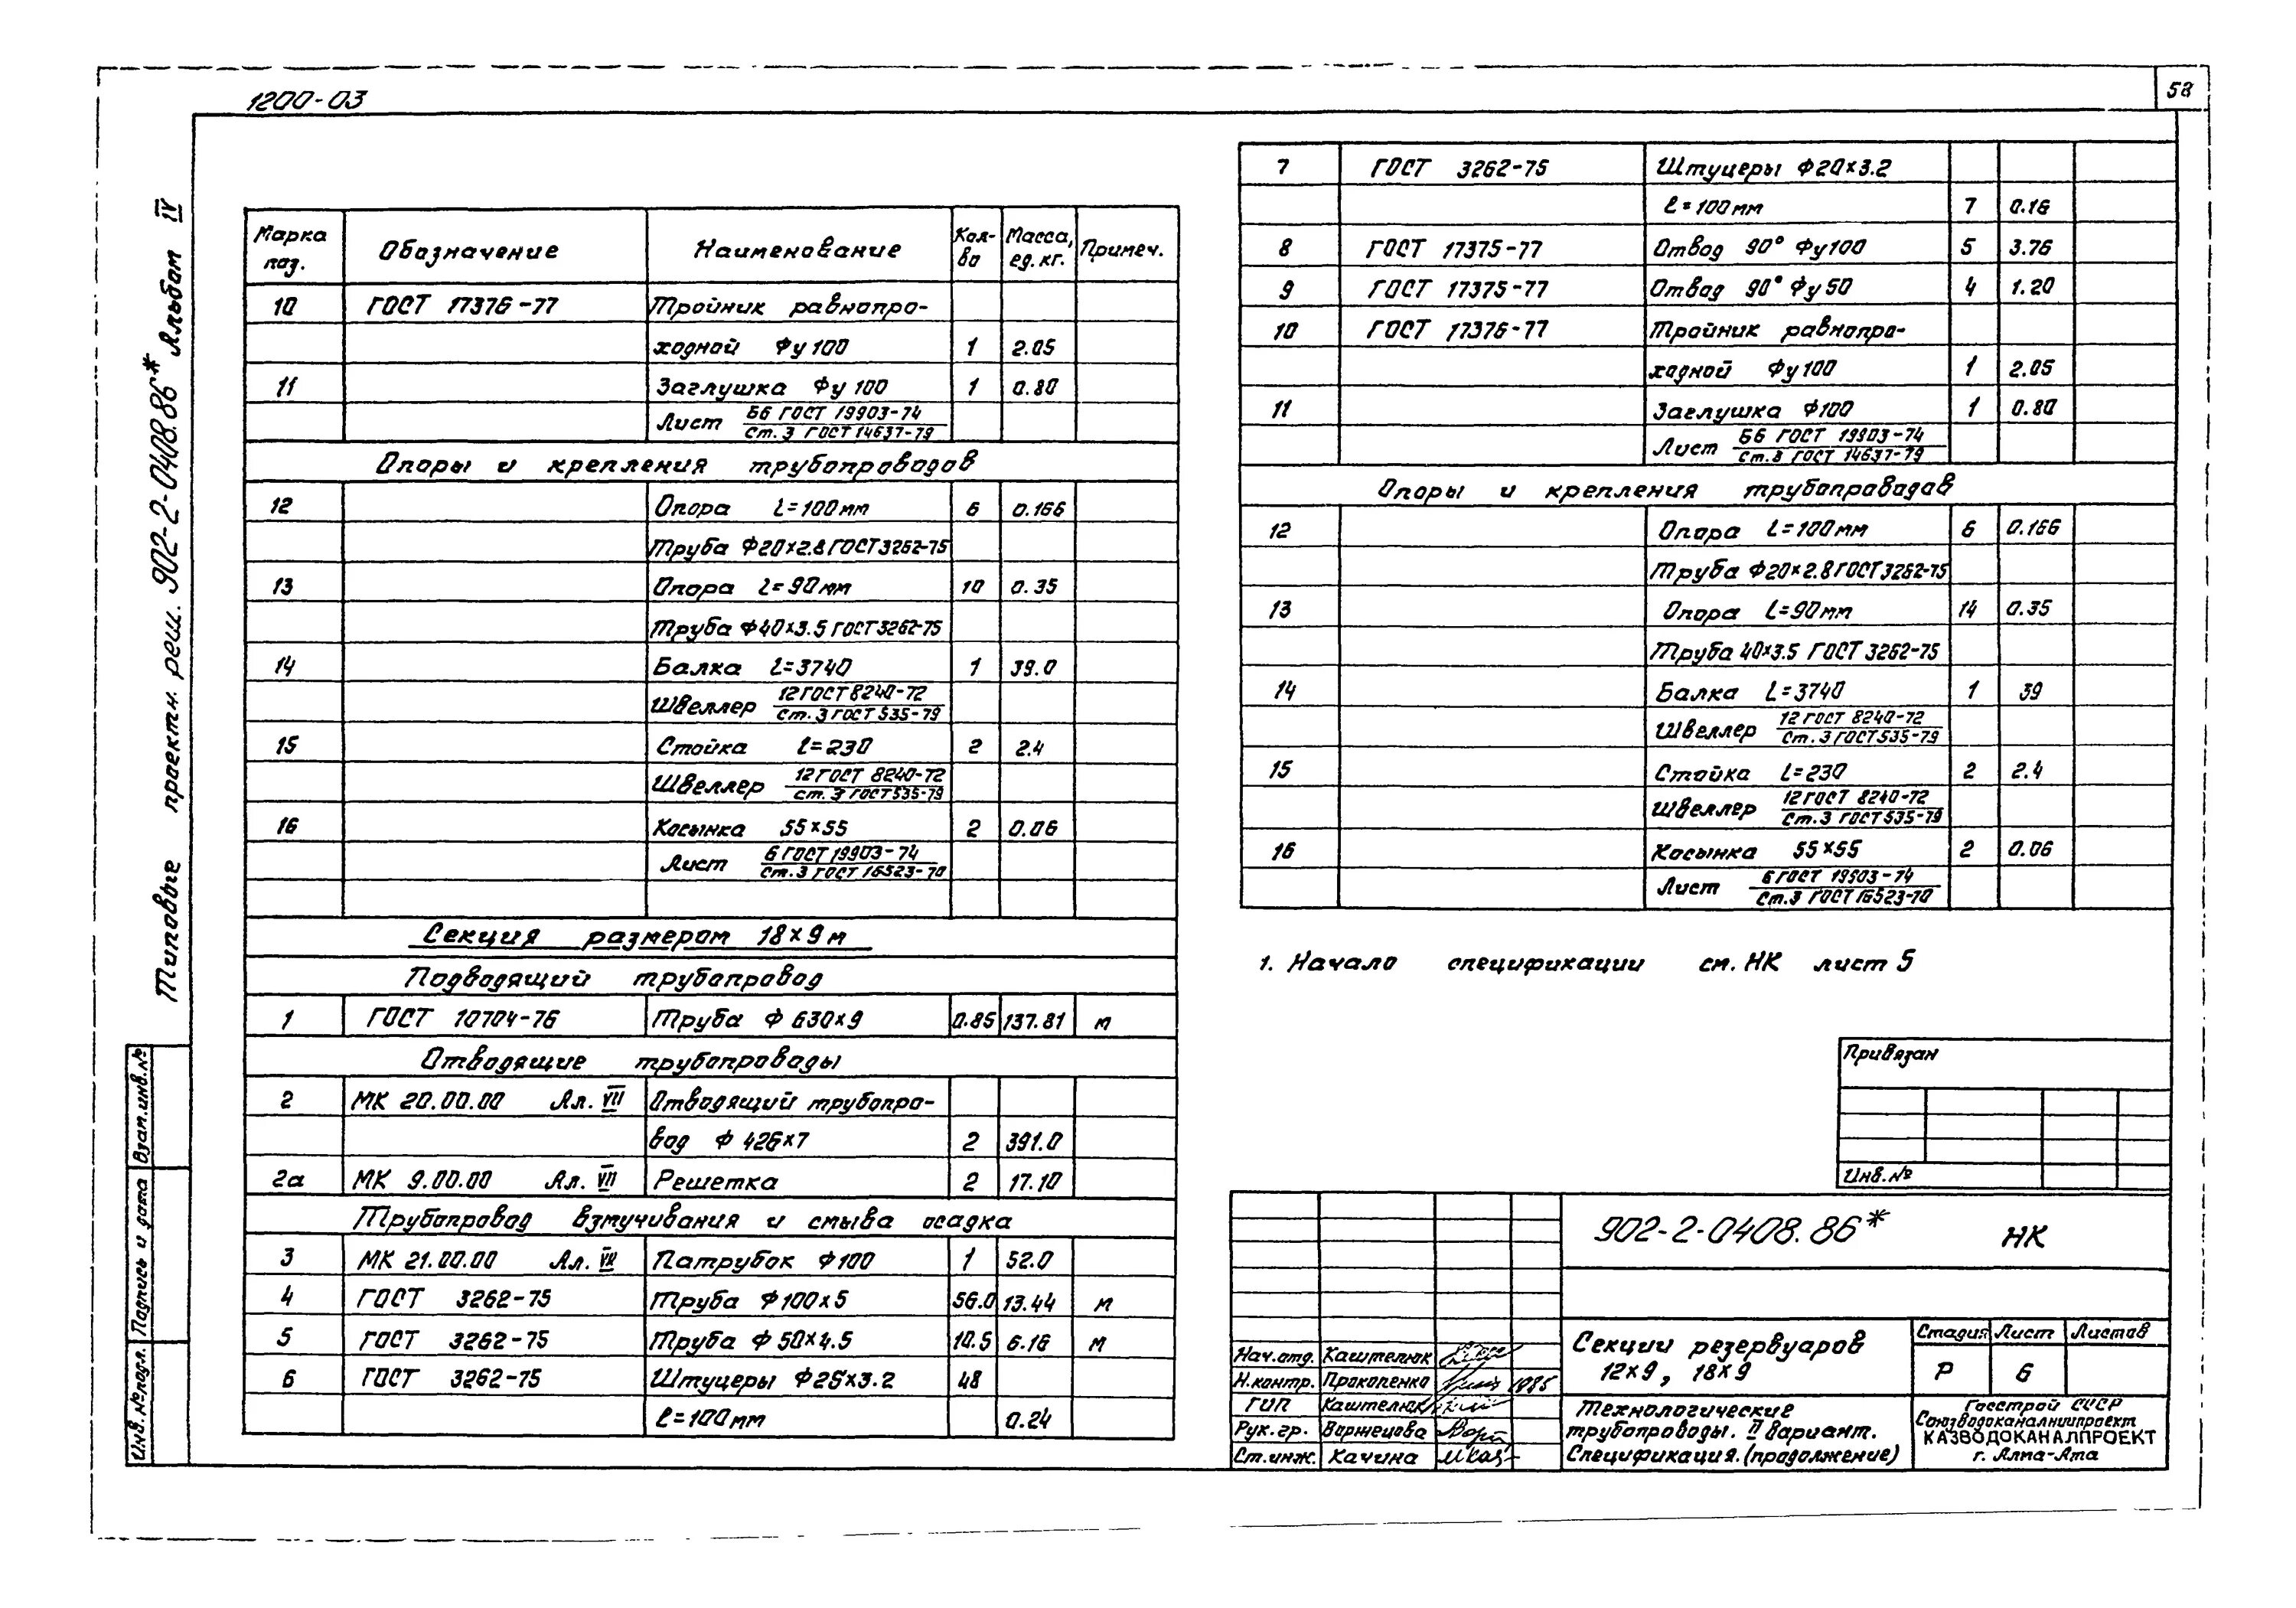 1200-03
58
Типовые проектн. реш. 902-2-0408.86* Альбом IV
Марка поз. Обозначение Наименование Кол-во Масса, ед. кг. Примеч.
10 ГОСТ 17376-77 Тройник равнопро-
ходной Фу 100 1 2.05
11 Заглушка Фу 100 1 0.80
Лист Б6 ГОСТ 19903-74
Ст. 3 ГОСТ 14637-79
Опоры и крепления трубопроводов
12 Опора L=100мм 6 0.166
Труба Ф20×2.8 ГОСТ 3262-75
13 Опора L=90мм 10 0.35
Труба Ф40×3.5 ГОСТ 3262-75
14 Балка L=3740 1 39.0
Швеллер 12 ГОСТ 8240-72
Ст. 3 ГОСТ 535-79
15 Стойка L=230 2 2.4
Швеллер 12 ГОСТ 8240-72
Ст. 3 ГОСТ 535-79
16 Косынка 55×55 2 0.06
Лист 6 ГОСТ 19903-74
Ст. 3 ГОСТ 16523-70
Секция размером 18×9м
Подводящий трубопровод
1 ГОСТ 10704-76 Труба Ф 630×9 0.85 137.81 м
Отводящие трубопроводы
2 МК 20.00.00 Ал. VII Отводящий трубопро-
вод Ф 426×7 2 391.0
2а МК 9.00.00 Ал. VII Решетка 2 17.10
Трубопровод взмучивания и смыва осадка
3 МК 21.00.00 Ал. VII Патрубок Ф100 1 52.0
4 ГОСТ 3262-75 Труба Ф100×5 56.0 13.44 м
5 ГОСТ 3262-75 Труба Ф 50×4.5 10.5 6.16 м
6 ГОСТ 3262-75 Штуцеры Ф25×3.2 48
ℓ=100мм 0.24
7 ГОСТ 3262-75 Штуцеры Ф20×3.2
ℓ=100мм 7 0.16
8 ГОСТ 17375-77 Отвод 90° Фу100 5 3.76
9 ГОСТ 17375-77 Отвод 90° Фу 50 4 1.20
10 ГОСТ 17376-77 Тройник равнопро-
ходной Фу100 1 2.05
11 Заглушка Ф100 1 0.80
Лист Б6 ГОСТ 19903-74
Ст. 3 ГОСТ 14637-79
Опоры и крепления трубопроводов
12 Опора L=100мм 6 0.166
Труба Ф20×2.8 ГОСТ 3262-75
13 Опора L=90мм 14 0.35
Труба 40×3.5 ГОСТ 3262-75
14 Балка L=3740 1 39
Швеллер 12 ГОСТ 8240-72
Ст. 3 ГОСТ 535-79
15 Стойка L=230 2 2.4
Швеллер 12 ГОСТ 8240-72
Ст. 3 ГОСТ 535-79
16 Косынка 55×55 2 0.06
Лист 6 ГОСТ 19903-74
Ст. 3 ГОСТ 16523-70
1. Начало спецификации см. НК лист 5
Привязан
Инв.№
902-2-0408.86* НК
Секции резервуаров
12×9, 18×9
Стадия Лист Листов
Р 6
Технологические
трубопроводы. II вариант.
Спецификация. (продолжение)
Госстрой СССР
Союзводоканалниипроект
КАЗВОДОКАНАЛПРОЕКТ
г. Алма-Ата
Нач.отд. Каштелюк
Н.контр. Прокопенко 1985
ГИП Каштелюк
Рук.гр. Воржецова
Ст.инж. Качина
Взам.инв.№
Подпись и дата
Инв.№подл.